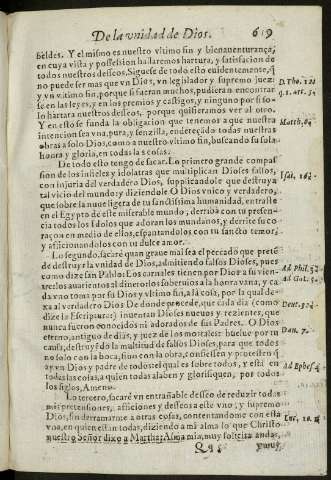 De la vnidad de Dios. 619
beldes. Y el mismo es nuestro vltimo fin y bienauenturança,
en cuya vista y possession hallaremos hartura, y satisfacion de
todos nuestros desseos. Siguese de todo esto euidentemente, q̃
no puede ser mas que vn Dios, vn legislador y supremo juez:
y vn vltimo fin, porque si fueran muchos, pudieran encontrar
se en las leyes, y en los premios y castigos, y ninguno por si so-
lo hartara nuestros desseos, porque quisieramos ver al otro.
Y en esto se funda la obligacion que tenemos a que nuestra
intencion sea vna, pura, y senzilla, endereçãdo todas nuestras
obras a solo Dios, como a nuestro vltimo fin, buscando su sola
honra y gloria, en todas las cosas.
De todo esto tengo de sacar. Lo primero grande compas
sion de los infieles y idolatras que multiplican Dioses falsos,
con injuria del verdadero Dios, suplicandole que destruya
tal vicio del mundo y diziendole O Dios vnico y verdadero,
que sobre la nuue ligera de tu sanctissima humanidad, entraste
en el Egypto de este miserable mundo, derriba con tu presen-
cia todos los Idolos que adoran los mundanos, y derrite su co-
raçon en medio de ellos, espantandolos con tu sancto temor,
y afficionandolos con tu dulce amor.
Lo segundo, sacarè quan graue mal sea el peccado que preté
de destruyr la vnidad de Dios, admitiendo falsos Dioses, pues
como dize san Pablo: Los carnales tienen por Dios a su vien-
tre: los auarientos al dinero: los soberuios a la honra vana, y ca
da vno toma por su Dios y vltimo fin, a la cosa, por la qual de-
xa al verdadero Dios De donde procede, que cada dia (como
dize la Escriptura) inuentan Dioses nueuos y rezientes, que
nunca fueron conocidos ni adorados de sus Padres. O Dios
eterno, antiguo de dias, y juez de los mortales: buelue por tu
causa, destruyẽdo la multitud de falsos Dioses, para que todos
no solo con la boca, sino con la obra, confiessen y protesten q̃
ay vn Dios y padre de todos: el qual es sobre todos, y està en
todas las cosas, a quien todas alaben y glorifiquen, por todos
los siglos, Amen.
Lo tercero, sacarè vn entrañable desseo de reduzir todas
mis pretensiones, afficiones y desseos a este vno, y supremo
Dios, sin derramarme a otras cosas, contentandome con esta
vna, en quien estan todas, diziendo a mi alma lo que Christo
nuestro Señor dixo a Martha: Alma mia, muy solicita andas,
Qq 5
D. Tho. 1. 2.
q. 1. art. 5.
Matth. 6.
Isai. 19.
Ad Phil. 3.
Ad Gal. 5.
Deut. 32.
Dan. 7.
Ad Ephes. 4.
Luc. 10.